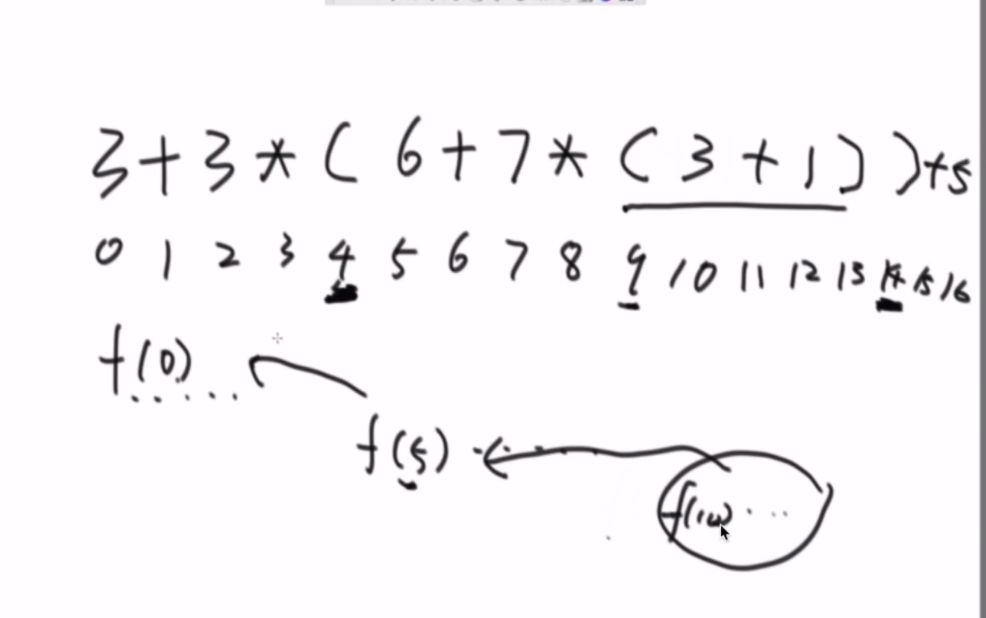 3+3*(6+7*(3+1))+5
0 1 2 3 4 5 6 7 8 9 10 11 12 13 14 15 16
f(0) .....
f(5) ....
f(10) ...